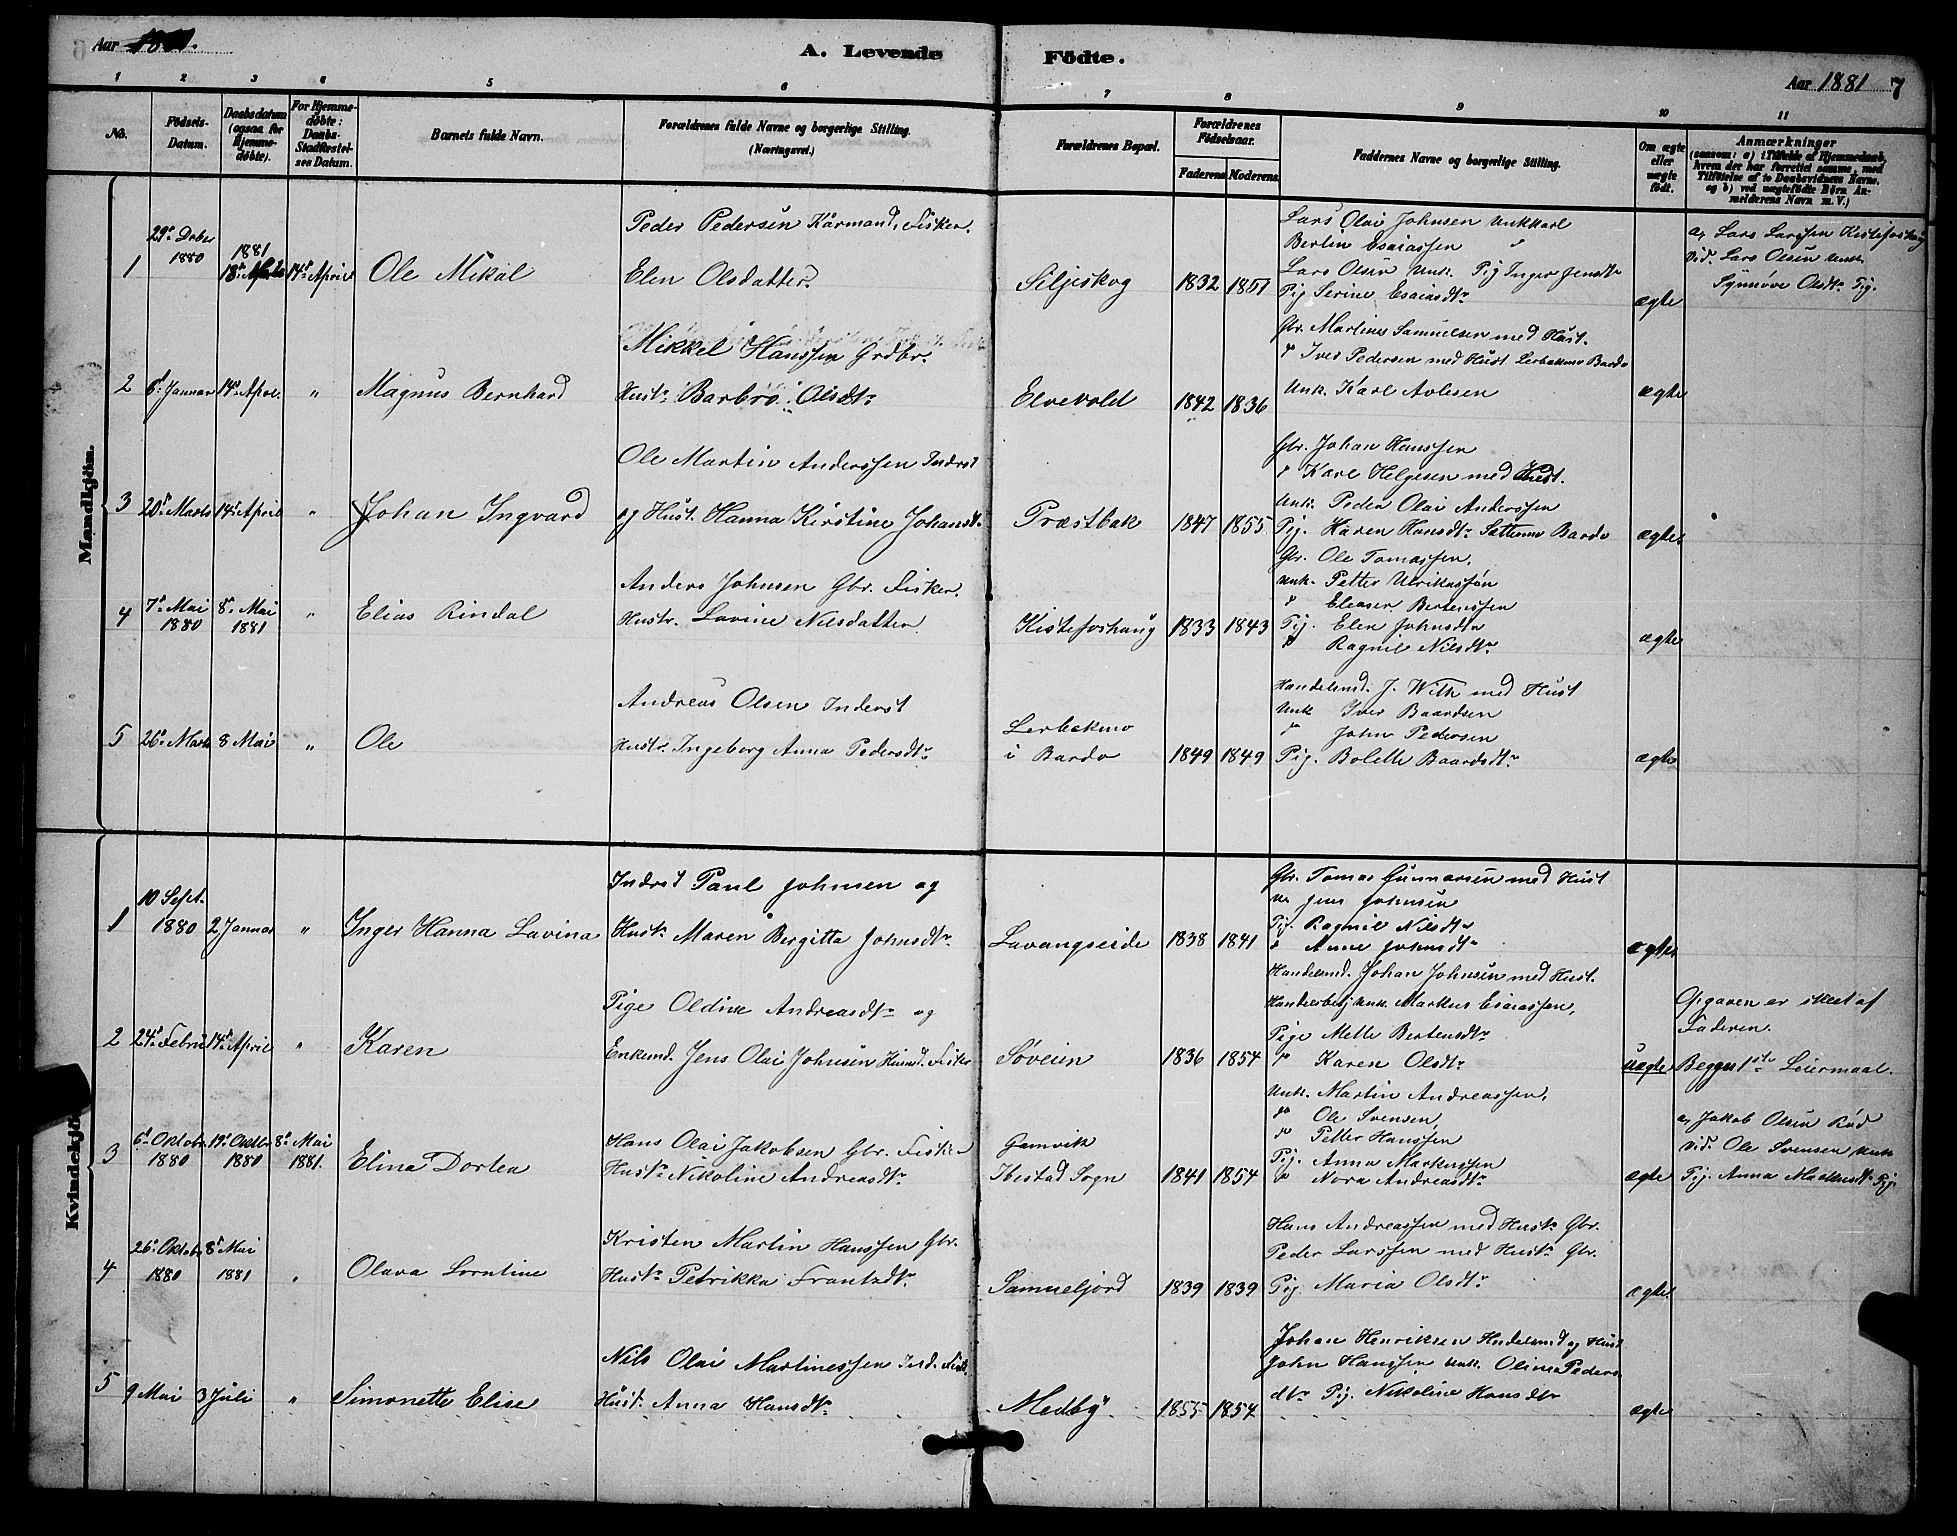 Aar 1881.
A. Levende Födte.
Aar 1881 7
1 2 3 4 5 6 7 8 9 10 11
No.
Födsels-Datum.
Daabsdatum (ogsaa for Hjemmedøbte).
For Hjemmedøbte: Daabs-Stadfæstelses Datum.
Barnets fulde Navn.
Forældrenes fulde Navne og borgerlige Stilling. (Næringsvei.)
Forældrenes Bopæl.
Forældrenes Födselsaar.
Faderens. Moderens.
Faddernes Navne og borgerlige Stilling.
Om ægte eller uægte födt.
Anmærkninger
(saasom: a) i Tilfælde af Hjemmedaab, hvem der har forrettet samme, med Tilföielse af to Daabsvidners Navne, og b) ved uægtefødte Börn Anmelderens Navn m. V.)
Mandkjön.
1 29de Dcber 1880 1881 18de Marts 14de April Ole Mikal
Peder Pedersen Kårmand, Fisker.
Elen Olsdatter
Seljeskog 1832 1851
Lars Olai Johnsen Unkkarl
Bertin Esaiassen "
Lars Olsen Unk. Pig Inger Jensdtr
Pig Serine Esaiasdtr
ægte
a, Lars Larssen Kistefoshaug
Vid. Lars Olsen Unk.
Synnöve Olsdtr Pig.
2 6te Januar 14de April " Magnus Bernhard
Mikkel Hanssen Grdbr.
Hustr Barbro Olsdtr
Elvevold 1842 1836
Gbr. Martines Samuelsen med Hust.
" Iver Pedersen med Hust Lerbekmo Bardo
Unk. Karl Avlesen
ægte
3 20de Marts 14de April " Johan Ingvard
Ole Martin Anderssen Inderst
og Hust. Hanna Kirstine Johansdt.
Præstbak 1847 1855
Gbr. Johan Hanssen
" Karl Helgesen med Hust.
Unk. Peder Olai Anderssen
Pig. Karen Hansdtr Sættermo Bardo
ægte.
4 7de Mai 1880 8de Mai 1881 " Elias Rindal
Anders Johnsen Gbr. Fisker.
Hustr. Lavine Nilsdatter
Kistefoshaug 1833 1843
Gbr. Ole Tomassen,
Unk. Petter Ulrikassön
" Eleaser Bertenssen
Pig. Elen Johnsdtr
" Ragnil Nilsdtr
ægte
5 26de Marts 8 Mai " Ole
Andreas Olsen Inderst
Hustr. Ingeborg Anna Pedersdtr
Lerbekmo
i Bardo 1849 1849
Handelsmd. J. With med Hust
Unk Iver Baardsen
" John Pedersen
Pig. Bolette Baardsdtr
ægte
Kvindekjön.
1 10 Sept. 1880 2 Januar " Inger Hanna Lavina
Inderst Paul Johnsen og
Hustr Maren Bergitta Johnsdtr
Lavangseide 1838 1841
Gbr. Tomas Gunnarsen med Hust
Uk. Jens Johnsen
Pig. Ragnil Nilsdtr
" Anne Johnsdtr
ægte
2 24de Febru 14de April " Karen
Pige Oldine Andreasdtr og
Enkemd. Jens Olai Johnsen Huusmd. Fisker
Søveien 1836 1854
Handelsmd. Johan Johnsen med Hust.
Handelsbetj Unk. Markus Esaiassen,
Pige Mette Bertensdtr
" Karen Olsdtr
uægte
Opgaven er skeet af
Faderen.
Begges 1ste Leiermaal.
3 6te Oktobr. 1880 19de Oktbr 1880 8de Mai 1881. Elina Dortea
Hans Olai Jakobsen Gbr. Fisker
Hustr Nikoline Andreasdtr
Gamvik
Ibestad Sogn 1841 1854
Unk. Martin Andreassen,
" Ole Svensen,
" Petter Hanssen
Pig. Anna Markussen
" Nora Andreasdtr
ægte
a, Jakob Olsen Röd
Vid. Ole Svensen Unk
Pig. Anna Markusdtr Pig.
4 26de Oktobr 1880 8de Mai 1881 " Olava Lorntine
Kristen Martin Hanssen Gbr.
Hustr Petrikka Frantzdtr
Samueljord 1839 1839
Hans Andreassen med Hustr Gbr.
Peder Larssen med Hustr Gbr.
Pig. Maria Olsdtr
ægte.
5 9 Mai 3 Juli " Simonette Elise
Nils Olai Martinessen Ind. Fisk.
Hust. Anna Hansdtr
Medby 1855 1854
Johan Henriksen Handelsmd og Hust
John Hanssen Unk. Olinea Peders
dtr Pig. Nikoline Hansdtr
ægte